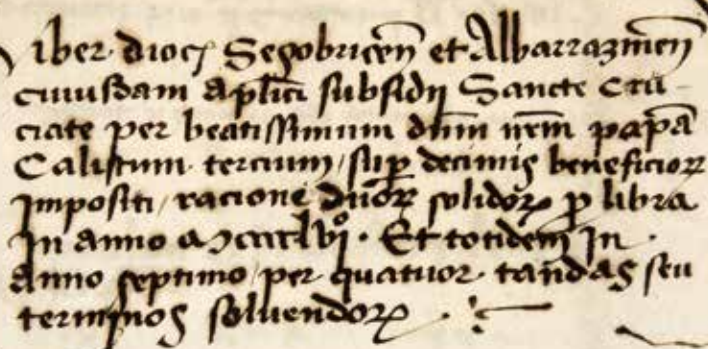 iber dioc̄ Segobricen̄ et Albarrazinen̄
cuiusdam ap̄lici subsidij Sancte Cru-
ciate per beatissimum dn̄m nr̄m papā
Calistum tercium / sup̱ decimis beneficioꝝ
Impositi / racione duoꝝ solidoꝝ ꝑ libra
In anno Mcccclvjº · Et totidem In ·
Anno septimo / per quatuor · tandas seu
terminos soluendoꝝ ·